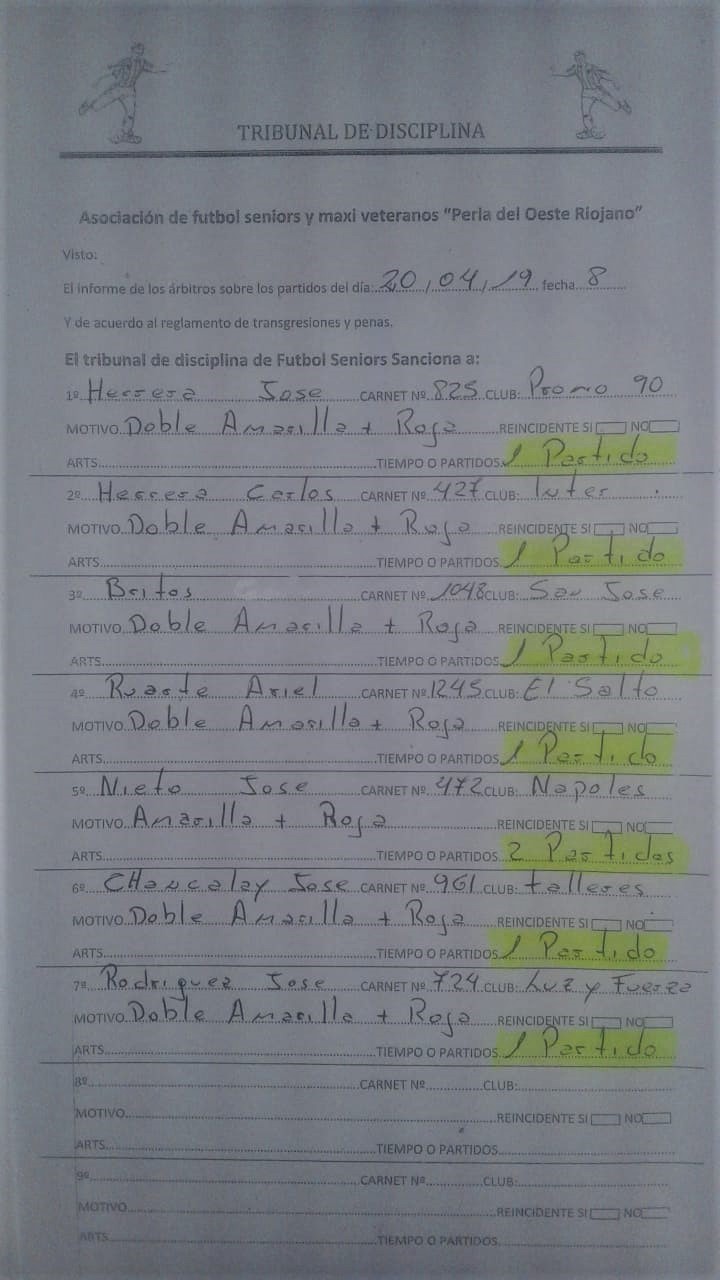 TRIBUNAL DE DISCIPLINA
Asociación de futbol seniors y maxi veteranos "Perla del Oeste Riojano"
Visto:
El informe de los árbitros sobre los partidos del día: 20, 04, 19 fecha 8
Y de acuerdo al reglamento de transgresiones y penas.
El tribunal de disciplina de Futbol Seniors Sanciona a:
1º Herrera Jose CARNET Nº 825 CLUB: Promo 90
MOTIVO Doble Amarilla + Roja REINCIDENTE SI NO
ARTS TIEMPO O PARTIDOS 1 Partido
2º Herrera Carlos CARNET Nº 427 CLUB: Inter
MOTIVO Doble Amarilla + Roja REINCIDENTE SI NO
ARTS TIEMPO O PARTIDOS 1 Partido
3º Britos CARNET Nº 1048 CLUB: San Jose
MOTIVO Doble Amarilla + Roja REINCIDENTE SI NO
ARTS TIEMPO O PARTIDOS 1 Partido
4º Ruarte Ariel CARNET Nº 1245 CLUB: El Salto
MOTIVO Doble Amarilla + Roja REINCIDENTE SI NO
ARTS TIEMPO O PARTIDOS 1 Partido
5º Nieto Jose CARNET Nº 472 CLUB: Napoles
MOTIVO Amarilla + Roja REINCIDENTE SI NO
ARTS TIEMPO O PARTIDOS 2 Partidos
6º CHancalay Jose CARNET Nº 961 CLUB: talleres
MOTIVO Doble Amarilla + Roja REINCIDENTE SI NO
ARTS TIEMPO O PARTIDOS 1 Partido
7º Rodriguez Jose CARNET Nº 724 CLUB: Luz y Fuerza
MOTIVO Doble Amarilla + Roja REINCIDENTE SI NO
ARTS TIEMPO O PARTIDOS 1 Partido
8º CARNET Nº CLUB:
MOTIVO REINCIDENTE SI NO
ARTS TIEMPO O PARTIDOS
9º CARNET Nº CLUB:
MOTIVO REINCIDENTE SI NO
ARTS TIEMPO O PARTIDOS